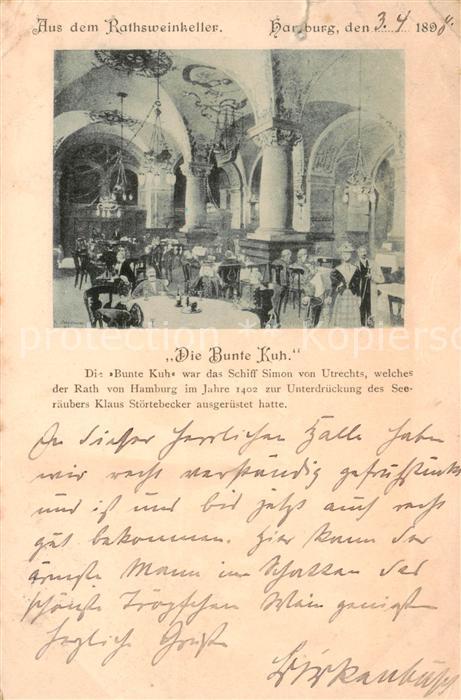 Aus dem Rathsweinkeller. Hamburg, den 3.4 1898.
„Die Bunte Kuh."
Die »Bunte Kuh« war das Schiff Simon von Utrechts, welches
der Rath von Hamburg im Jahre 1402 zur Unterdrückung des See-
räubers Klaus Störtebecker ausgerüstet hatte.
In dieser herrlichen Halle haben
wir recht verständig gefrühstückt
und ist uns bis jetzt auch recht
gut bekommen. Hier kann der
ärmste Mann im Schatten das
schönste Tröpfchen Wein genießen
Herzliche Grüße
Birkenbusch